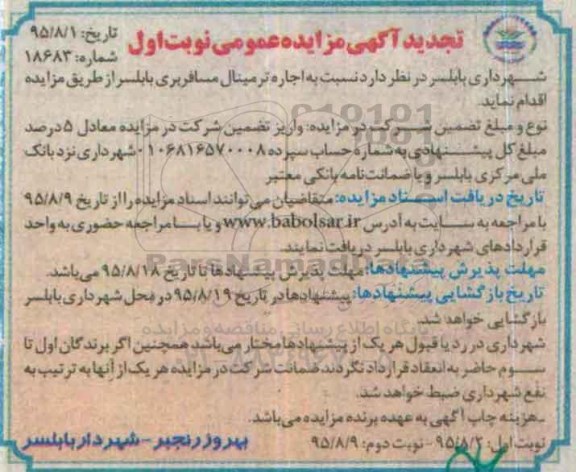 تجدید آگهی مزایده عمومی نوبت اول
تاریخ: ۹۵/۸/۱
شماره: ۱۸۶۸۳
شهرداری بابلسر در نظر دارد نسبت به اجاره ترمینال مسافربری بابلسر از طریق مزایده
اقدام نماید.
نوع و مبلغ تضمین شرکت در مزایده: واریز تضمین شرکت در مزایده معادل ۵ درصد
مبلغ کل پیشنهادی به شماره حساب سپرده ۰۱۰۶۸۱۶۵۷۰۰۰۸ شهرداری نزد بانک
ملی مرکزی بابلسر و یا ضمانت نامه بانکی معتبر
تاریخ دریافت اسناد مزایده: متقاضیان می توانند اسناد مزایده را از تاریخ ۹۵/۸/۹
با مراجعه به سایت به آدرس www.babolsar.ir و یا با مراجعه حضوری به واحد
قراردادهای شهرداری بابلسر دریافت نمایند.
مهلت پذیرش پیشنهادها: مهلت پذیرش پیشنهادها تا تاریخ ۹۵/۸/۱۸ می باشد.
تاریخ بازگشایی پیشنهادها: پیشنهادها در تاریخ ۹۵/۸/۱۹ در محل شهرداری بابلسر
بازگشایی خواهد شد.
شهرداری در رد یا قبول هر یک از پیشنهادها مختار می باشد همچنین اگر برندگان اول تا
سوم حاضر به انعقاد قرارداد نگردند ضمانت شرکت در مزایده هر یک از آنها به ترتیب به
نفع شهرداری ضبط خواهد شد.
-هزینه چاپ آگهی به عهده برنده مزایده می باشد.
نوبت اول: ۹۵/۸/۲ - نوبت دوم: ۹۵/۸/۹
بهروز رنجبر - شهردار بابلسر
ParsNamadData
پایگاه اطلاع رسانی مناقصه و مزایده